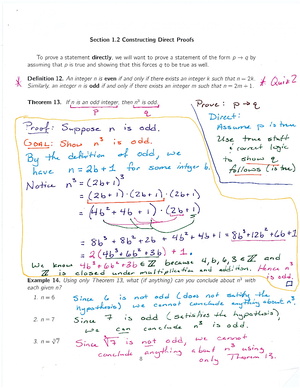 Section 1.2 Constructing Direct Proofs
To prove a statement directly, we will want to prove a statement of the form p → q by
assuming that p is true and showing that this forces q to be true as well.
* Definition 12. An integer n is even if and only if there exists an integer k such that n = 2k.
Similarly, an integer n is odd if and only if there exists an integer m such that n = 2m + 1.
* Quiz 2
Theorem 13. If n is an odd integer, then n³ is odd.
p q
Prove: p → q
Direct:
Assume p is true
Use true stuff
+ correct logic
to show q
follows (is true)
Proof: Suppose n is odd.
GOAL: Show n³ is odd.
By the definition of odd, we
have n = 2b+1 for some integer b.
Notice n³ = (2b+1)³
= (2b+1)·(2b+1)·(2b+1)
= (4b²+4b+1)·(2b+1)
= 8b³+8b²+2b+4b²+4b+1 = 8b³+12b²+6b+1
= 2(4b³+6b²+3b)+1.
We know 4b³+6b²+3b ∈ ℤ because 4, b, 6, 3 ∈ ℤ and
ℤ is closed under multiplication and addition. Hence n³
is odd.
□
Example 14. Using only Theorem 13, what (if anything) can you conclude about n³ with
each given n?
1. n = 6 Since 6 is not odd (does not satisfy the
hypothesis) we cannot conclude anything about n³.
2. n = 7 Since 7 is odd (satisfies the hypothesis)
we can conclude n³ is odd.
3. n = ∛7 Since ∛7 is not odd, we cannot
conclude anything about n³ using
only Theorem 13.